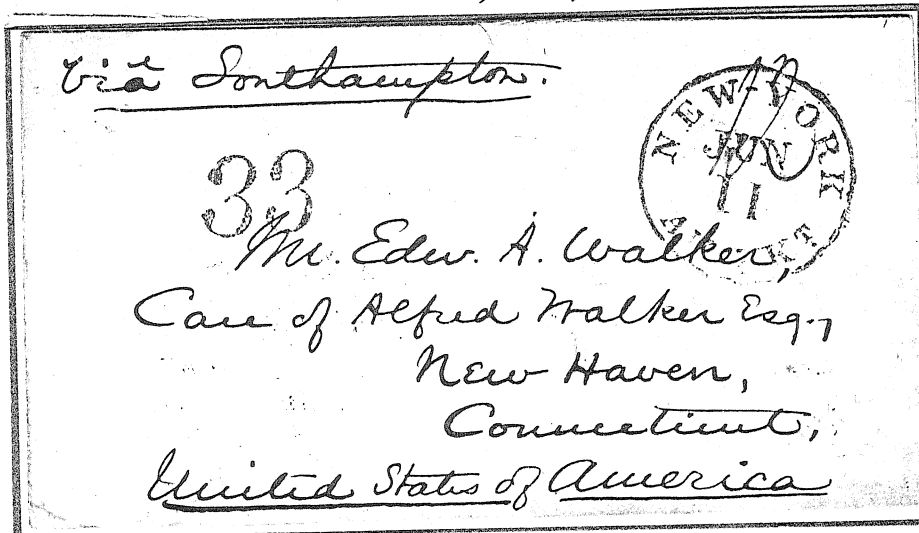 Viâ Southampton.
NEW-YORK
JUN
11
33
Mr. Edw. A. Walker,
Care of Alfred Walker Esq.,
New Haven,
Connecticut,
United States of America